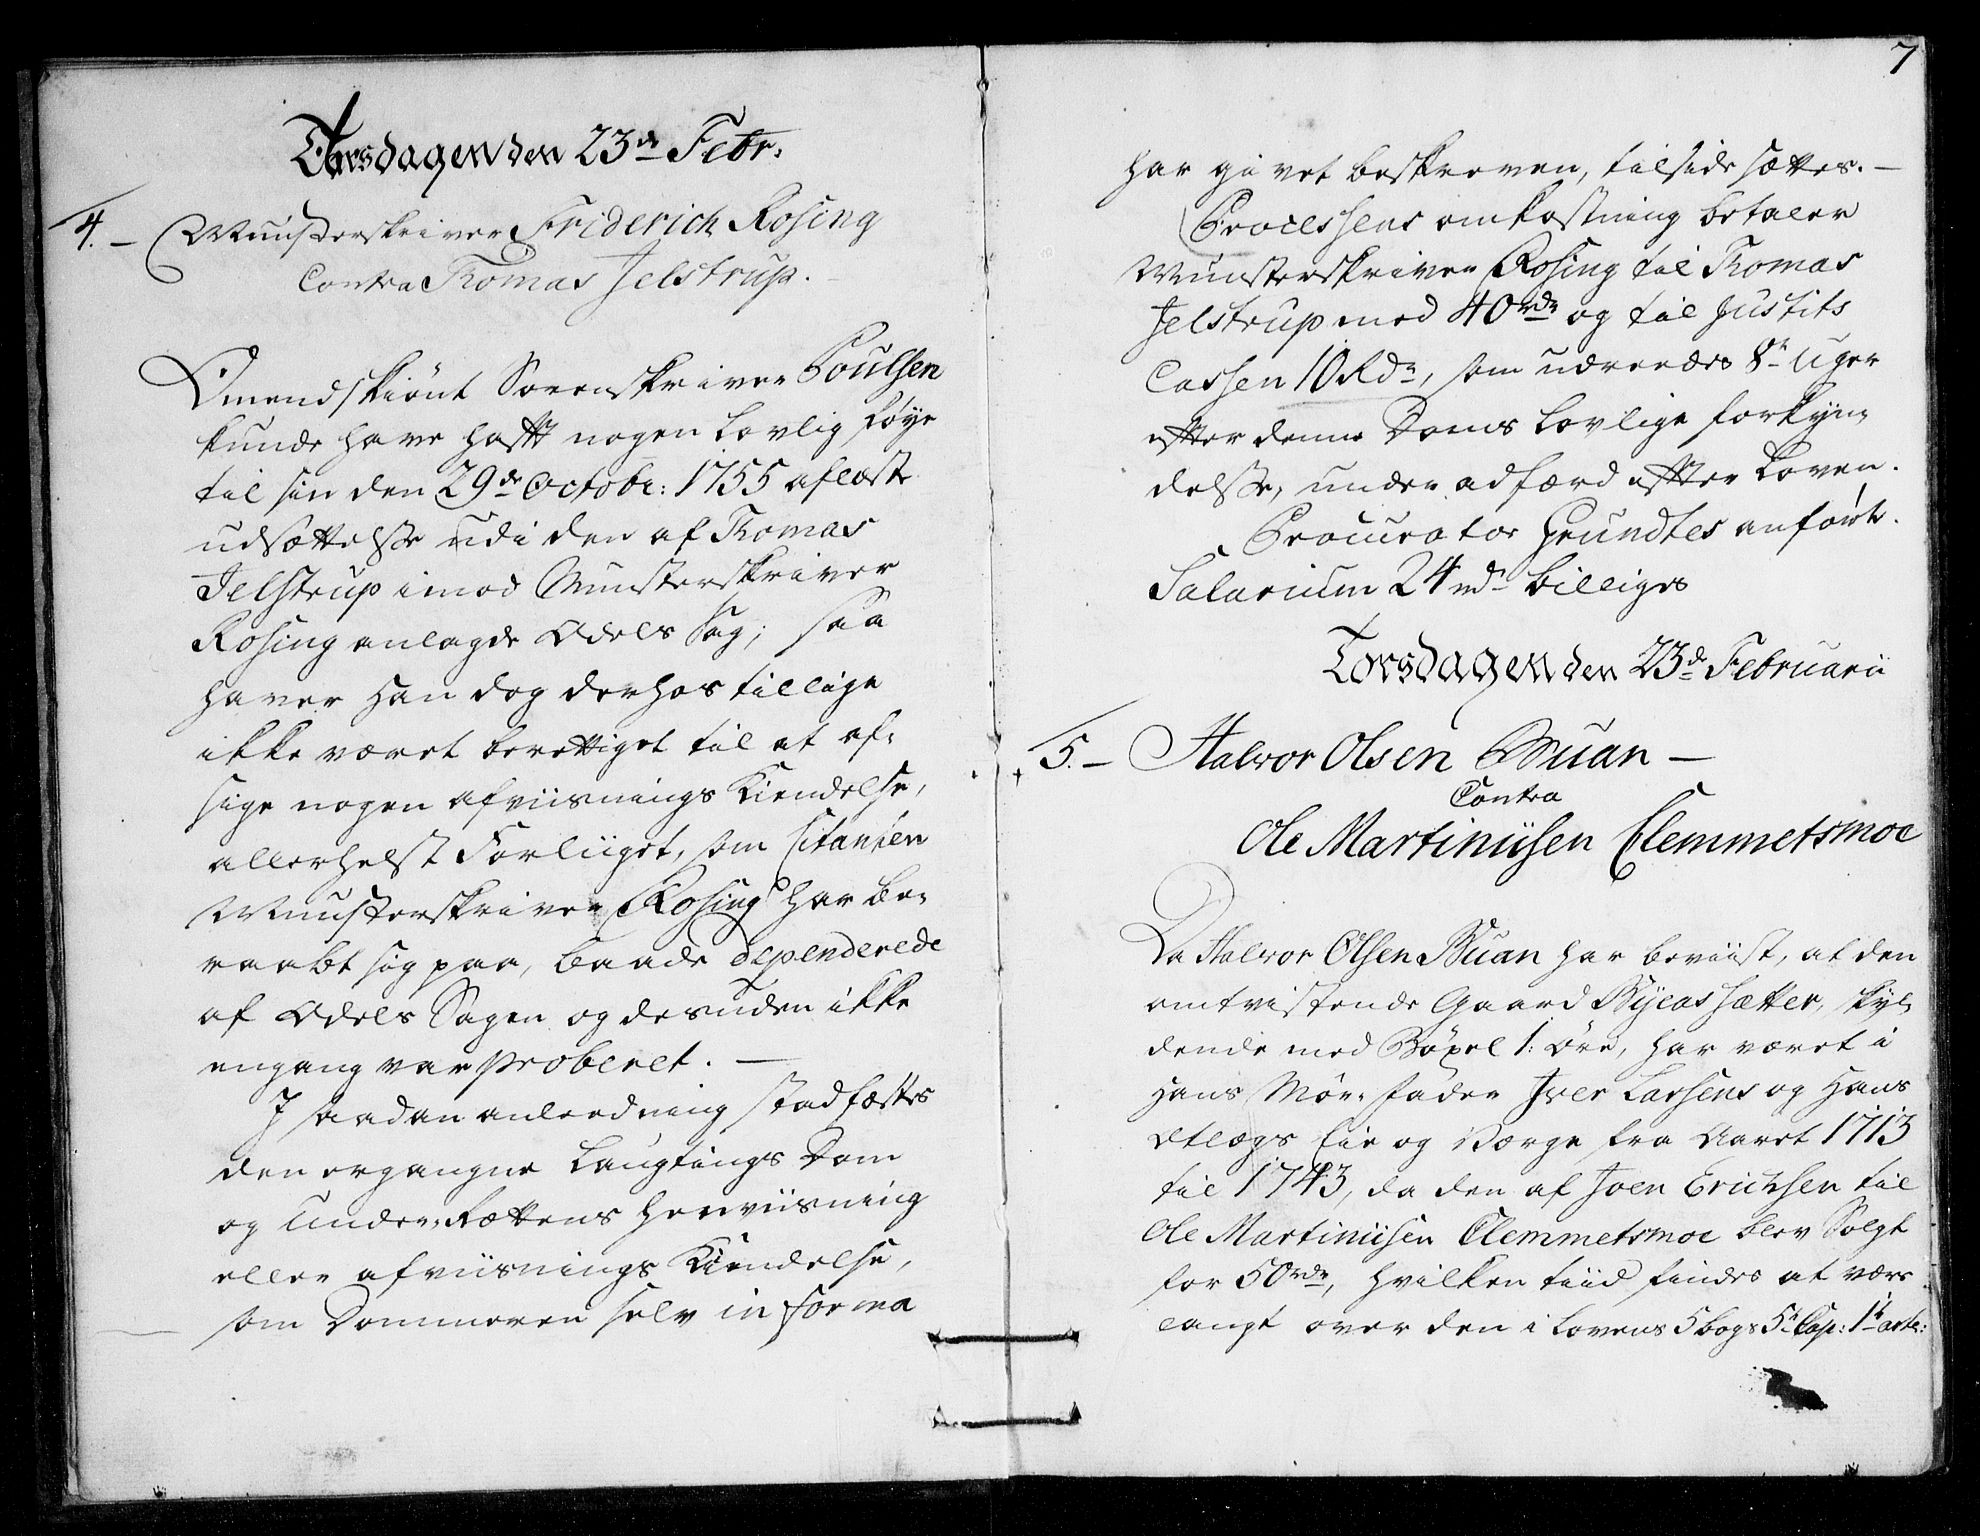 Torsdagen den 23de Febr.
4. – Munsterskriver Friderich Rosing
Contra Thomas Jelstrup.
Omendskiønt Sorenskriver Poulsen
kunde have hafft nogen Lovlig føye
til sin den 29de Octobr: 1755 aflagte
udsættelse udi den af Thomas
Jelstrup imod Munsterskriver
Rosing anlagde Odels Sag; saa
haver han dog derhos tillige
ikke været berettiget til at af-
sige nogen afviisnings Kiendelse,
allerhelst Forliiget, som Citanten
Munsterskriver Rosing har be-
raabt sig paa, baade dependerede
af Odels Sagen og desuden ikke
engang var proberet. –
I saadan anleedning stadfæstes
den ergangne Laugtings Dom
og Under-Rættens henviisning
eller afviisnings Kiendelse,
som Dommeren selv in forma
7
har givet beskreven, tilside sættes. –
Processens omkostning betaler
Munsterskriver Rosing til Thomas
Jelstrup med 40 rdr og til Justits
Cassen 10 Rdr, som udreedes 8te Uger
efter denne Doms Lovlige forkyn-
delse, under adfærd efter Loven.
Procurator Grundtes anførte
Salarium 24 rdr billiges
Torsdagen den 23de Februarii
5. – Halvor Olsen Buan –
Contra
Ole Martinusen Clemmetsmoe
Da Halvor Olsen Buan har beviist, at den
omtvistende Gaard Byeassætter, skyl-
dende med Bøxel 1: Øre, har været i
hans Mor-fader Iver Larsens og hans
Ætlægs Eie og Værge fra Aaret 1713
til 1743, da den af Joen Erichsen til
Ole Martinusen Clemmetsmoe blev Solgt
for 50 rdr, hvilken tiid findes at være
langt over den i Lovens 5 bogs 5te Cap: 1te artc: